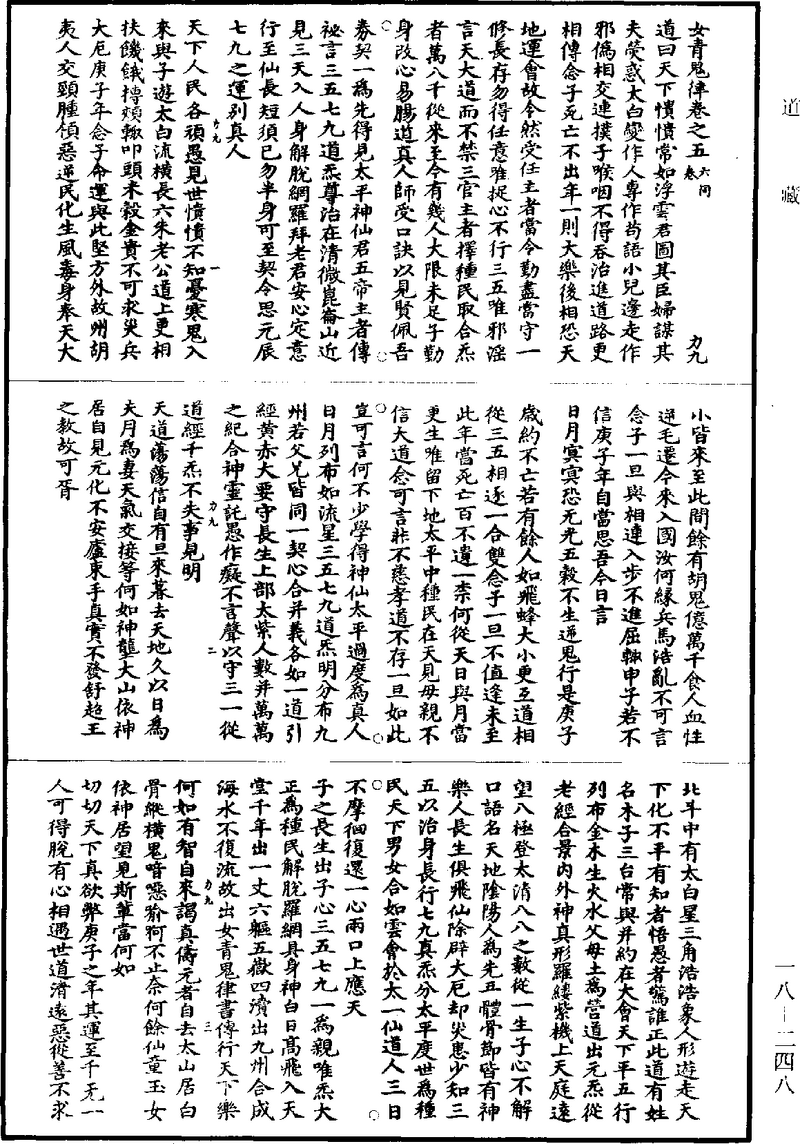 道藏
女青鬼律卷之五 六同卷 力九
道曰天下憒憒常如浮雲君圖其臣婦謀其
夫熒惑太白變作人專作苟語小兒邊走作
邪偽相交連撲子喉咽不得吞治進道路更
相傳念子死亡不出年一則大樂後相恐天
地運會故令然受任主者當令勤盡當守一
修長存勿得任意唯捉心不行三五唯邪淫
言天大道而不禁三官主者擇種民取合炁
者萬八千從來至今有幾人大限未足子勤
身改心易腸道真人師受口訣以見賢佩吾
券契一為先得見太平神仙君五帝主者傳
祕言三五七九道炁尊治在清微崑崙山近
見三天入人身解脫網羅拜老君安心定意
行至仙長短須已勿半身可至契令思元辰
七九之運別真人
力九 一
天下人民各頑愚見世憒憒不知憂寒鬼入
來與子遊太白流橫長六朱老公道上更相
扶饑餓摶頰輙叩頭米穀金貴不可求災兵
大厄庚子年念子命運與此堅方外故州胡
夷人交頸腫頷惡逆民化生風毒身奉天大
小皆來至此間餘有胡鬼億萬千食人血性
逆毛還今來入國汝何緣兵馬浩亂不可言
念子一旦與相連入步不進屈輙申子若不
信庚子年自當思吾今日言
日月冥冥恐无光五穀不生逆鬼行是庚子
歲約不亡若有餘人如飛蜂大小更互道相
從三五相逐一合雙念子一旦不值逢未至
此年當死亡百不遺一柰何從天日與月當
更生唯留下地太平中種民在天見母親不
信大道念可言非不慈孝道不存一旦如此
豈可言何不少學得神仙太平過度為真人
日月列布如流星三五七九道炁明分布九
州若父兄皆同一契心合并義各如一道引
經黃赤大要守長生上部太紫人數并萬萬
之紀合神靈託愚作癡不言聲以守三一從
力九 二
道經千炁不失事見明
天道蕩蕩信自有旦來暮去天地久以日為
夫月為妻天氣交接等何如神壟大山依神
居自見元化不安廬東手真實不發舒超王
之教故可胥
北斗中有太白星三角浩浩象人形遊走天
下化不平有知者悟愚者驚誰正此道有姓
名木子三台常與并約在大會天下平五行
列布金木生火水父母土為營道出元炁從
老經合景內外神真形羅縷紫機上天庭遠
望八極登太清八八之數從一生子心不解
口語名天地陰陽人為先五體骨節皆有神
樂人長生俱飛仙除辟大厄却災患少知三
五以治身長行七九真炁分太平度世為種
民天下男女合如雲會於太一仙道人三日
不摩徊復還一心兩口上應天
子之長生出子心三五七九一為親唯炁大
正為種民解脫羅網具身神白日高飛入天
堂千年出一丈六軀五嶽四瀆出九州合成
海水不復流故出女青鬼律書傳行天下樂
力九 三
何如有智自來謁真儔元者自去太山居白
骨縱橫鬼喑噁奔狗不止奈何餘仙童玉女
依神居望見斯輩當何如
切切天下真欲弊庚子之年其運至千无一
人可得脫有心相遇世道清遠惡從善不求
一八–二四八